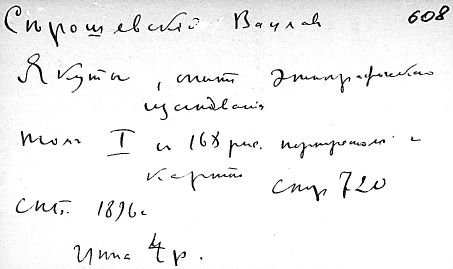 Сѣрошевскій Вацлав 608
Якуты, опыт этнографическаго
изслѣдованія
том I с 168 рис. портретом и
картой стр 720
СПб. 1896 г
цена 4 р.